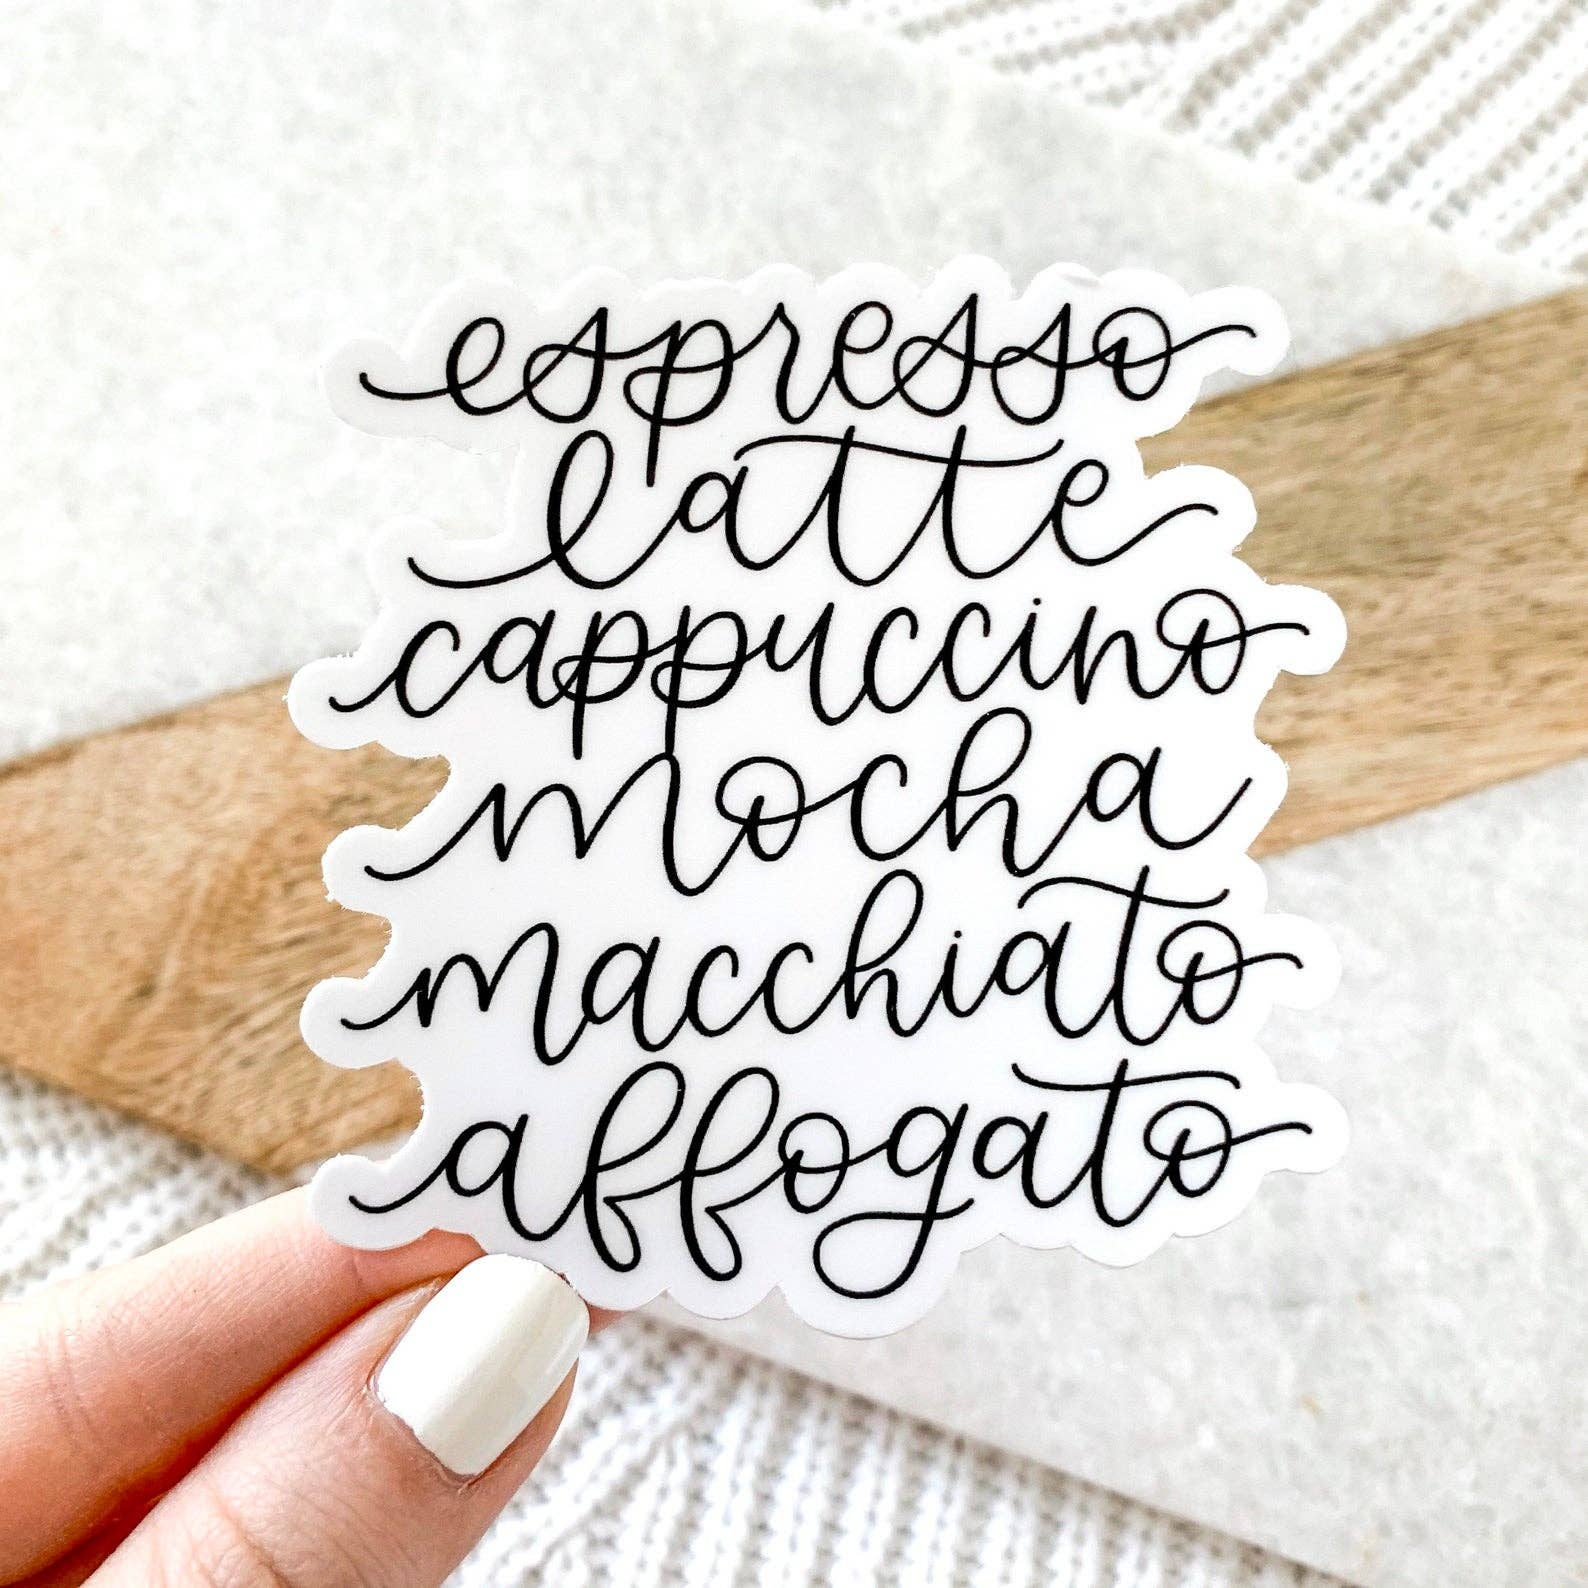 espresso
latte
cappuccino
mocha
macchiato
affogato